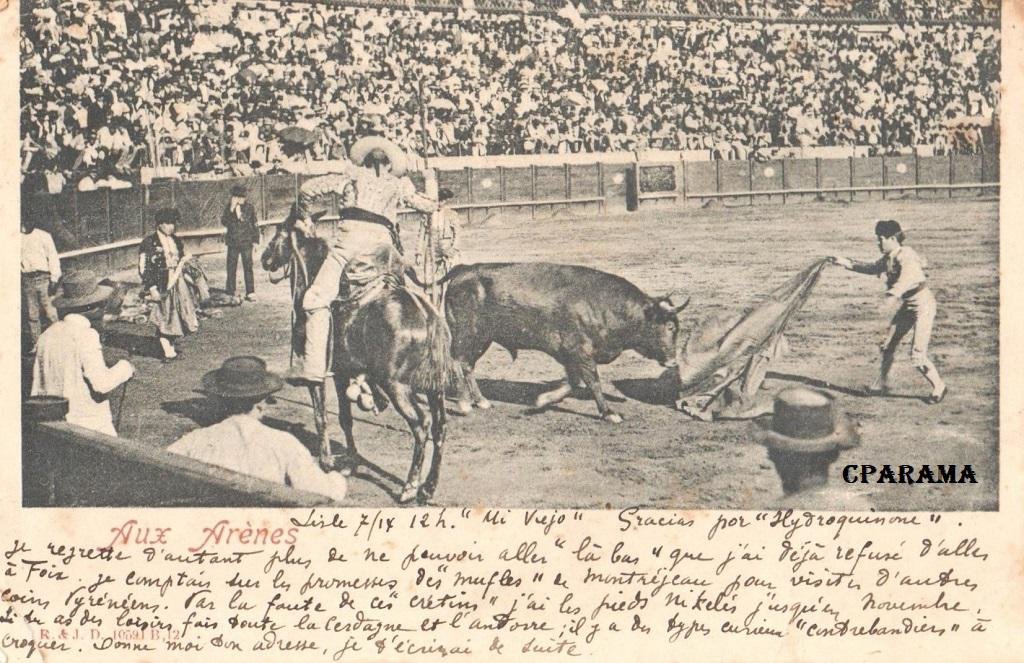 CPARAMA
Aux Arènes
Lisle 7/IX 12h. "Mi Viejo" Gracias por "Hydroquinone".
Je regrette d'autant plus de ne pouvoir aller "là bas" que j'ai déjà refusé d'aller
à Foix. je comptais sur les promesses des "mufles" de Montréjeau pour visiter d'autres
coins Pyrénéens. Par la faute de ces "crétins" j'ai les pieds Nikelés jusqu'en Novembre.
Si tu as des loisirs fais toute la Cerdagne et l'andorre; il y a des types curieux "contrebandiers" à
R. & J. D. 10591 B 12
croquer. Donne moi ton adresse, je t'écrirai de suite.